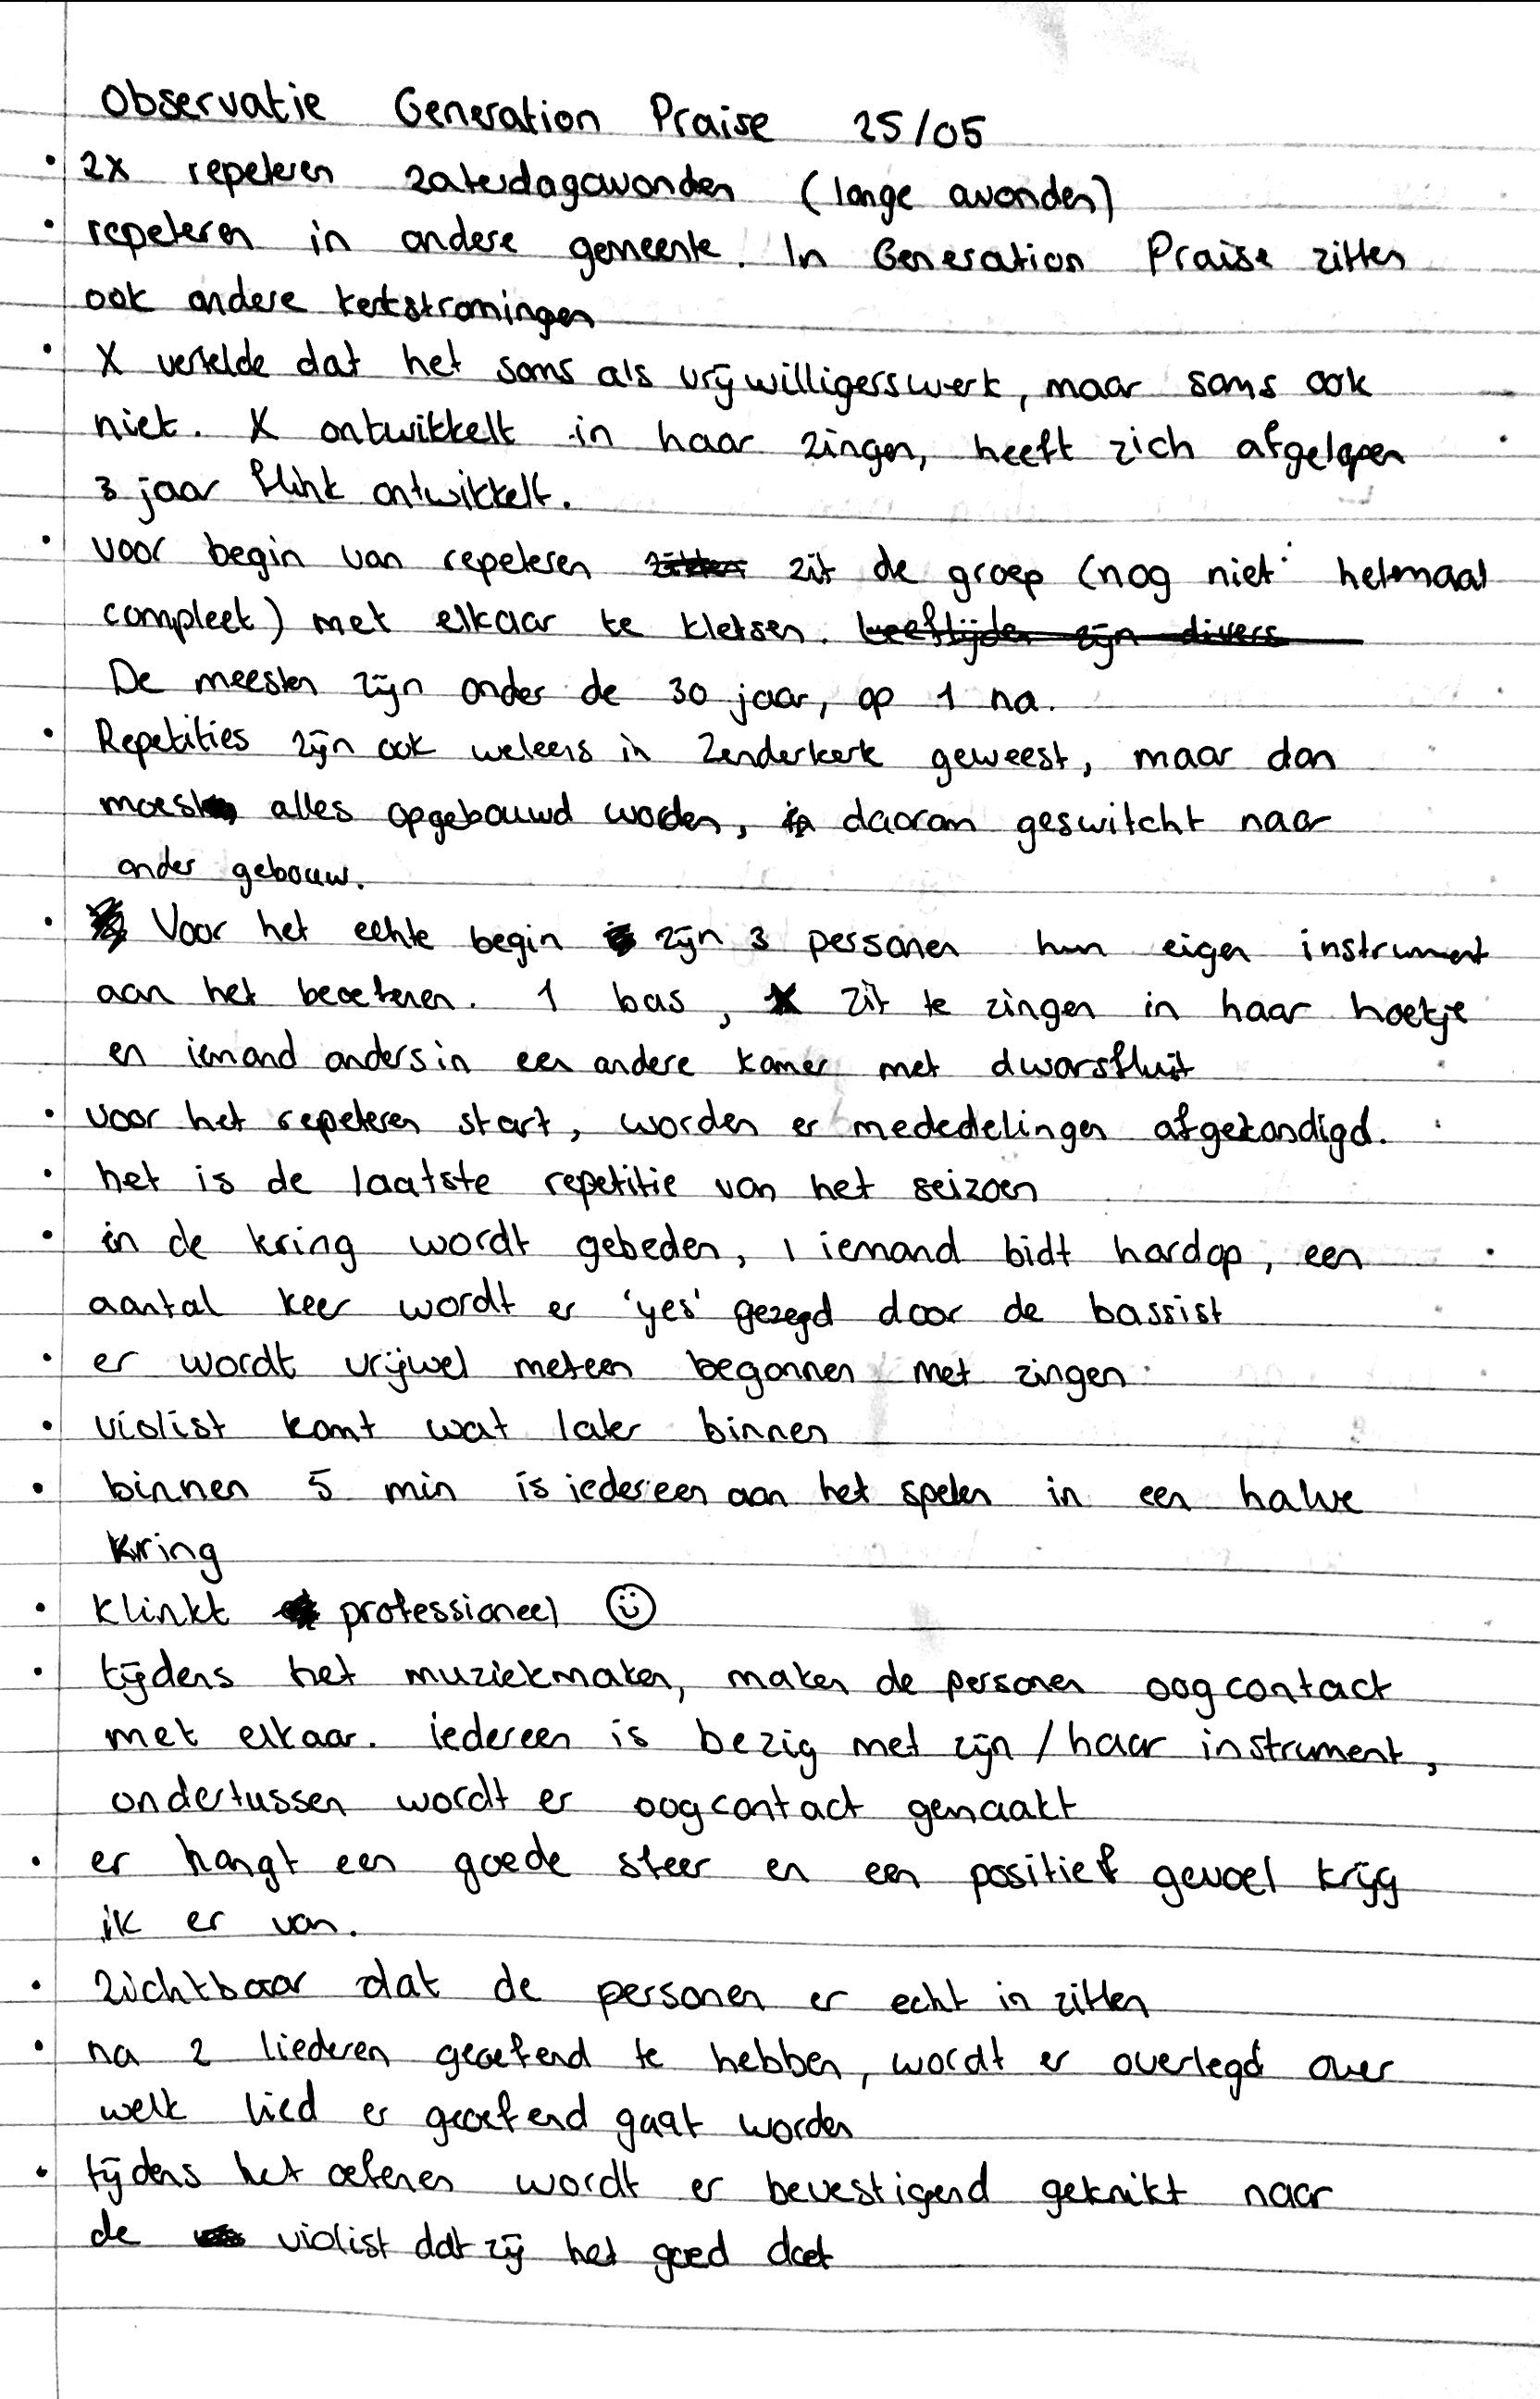 Observatie Generation Praise 25/05
• 2x repeteren zaterdagavonden (lange avonden)
• repeteren in andere gemeente. In Generation Praise zitten
ook andere kerkstromingen
• X vertelde dat het soms als vrijwilligerswerk, maar soms ook
niet. X ontwikkelt in haar zingen, heeft zich afgelopen
3 jaar flink ontwikkelt.
• voor begin van repeteren zitten zit de groep (nog niet helemaal
compleet) met elkaar te kletsen. Leeftijden zijn divers
De meesten zijn onder de 30 jaar, op 1 na.
• Repetities zijn ook weleens in Zenderkerk geweest, maar dan
moest alles opgebouwd worden, in daarom geswitcht naar
ander gebouw.
• Voor het echte begin zijn 3 personen hun eigen instrument
aan het beoefenen. 1 bas, X zit te zingen in haar hoekje
en iemand anders in een andere kamer met dwarsfluit
• voor het repeteren start, worden er mededelingen afgekondigd.
• het is de laatste repetitie van het seizoen
• in de kring wordt gebeden, 1 iemand bidt hardop, een
aantal keer wordt er 'yes' gezegd door de bassist
• er wordt vrijwel meteen begonnen met zingen
• violist komt wat later binnen
• binnen 5 min is iedereen aan het spelen in een halve
kring
• klinkt professioneel ☺
• tijdens het muziekmaken, maken de personen oogcontact
met elkaar. iedereen is bezig met zijn/haar instrument,
ondertussen wordt er oogcontact gemaakt
• er hangt een goede sfeer en een positief gevoel krijg
ik er van.
• zichtbaar dat de personen er echt in zitten
• na 2 liederen geoefend te hebben, wordt er overlegd over
welk lied er geoefend gaat worden
• tijdens het oefenen wordt er bevestigend geknikt naar
de violist dat zij het goed doet